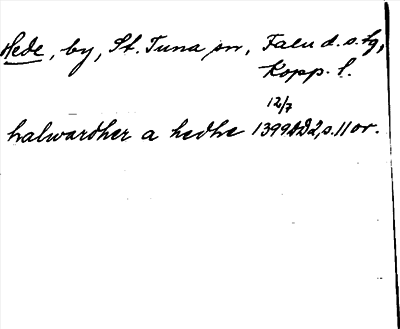 Hede, by, St. Tuna sn, Falu d. s. lg,
Kopp. l.
12/7
halwardher a hedhe 1399 DD2, s. 11 or.